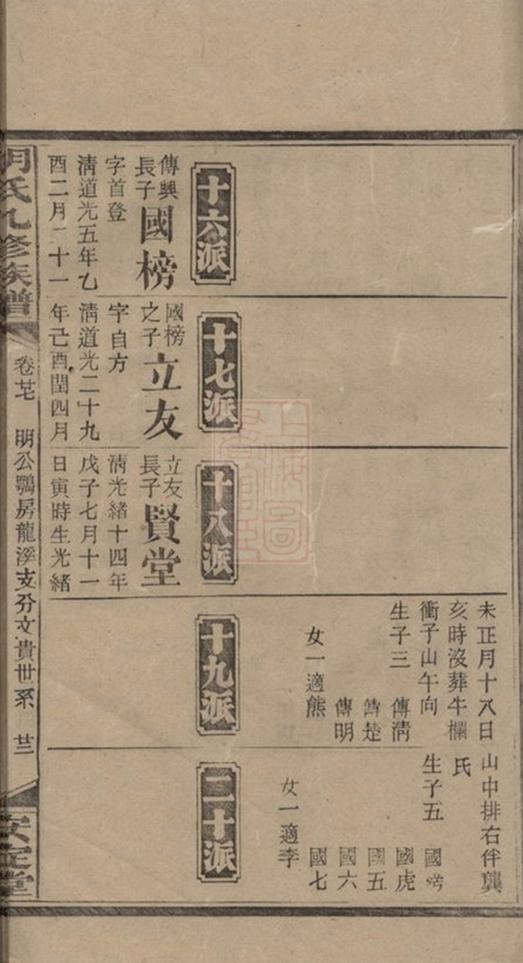 未正月十八日
亥時沒葬牛欄
衝子山午向
生子三 傳清
傳楚
傳明
女一適熊
山中排右伴龔
氏
生子五
國虎
國五
國六
國七
女一適李
十六派
傳興長子國榜
字首登
清道光五年乙
酉二月二十一
十七派
國榜之子立友
字自方
清道光二十九
年己酉閏四月
十八派
立友長子賢堂
清光緒十四年
戊子七月十一
日寅時生光緒
十九派
二十派
胡氏九修族譜
卷廿七
明公鶚房龍溪支分文貴世系
廿二
安定堂